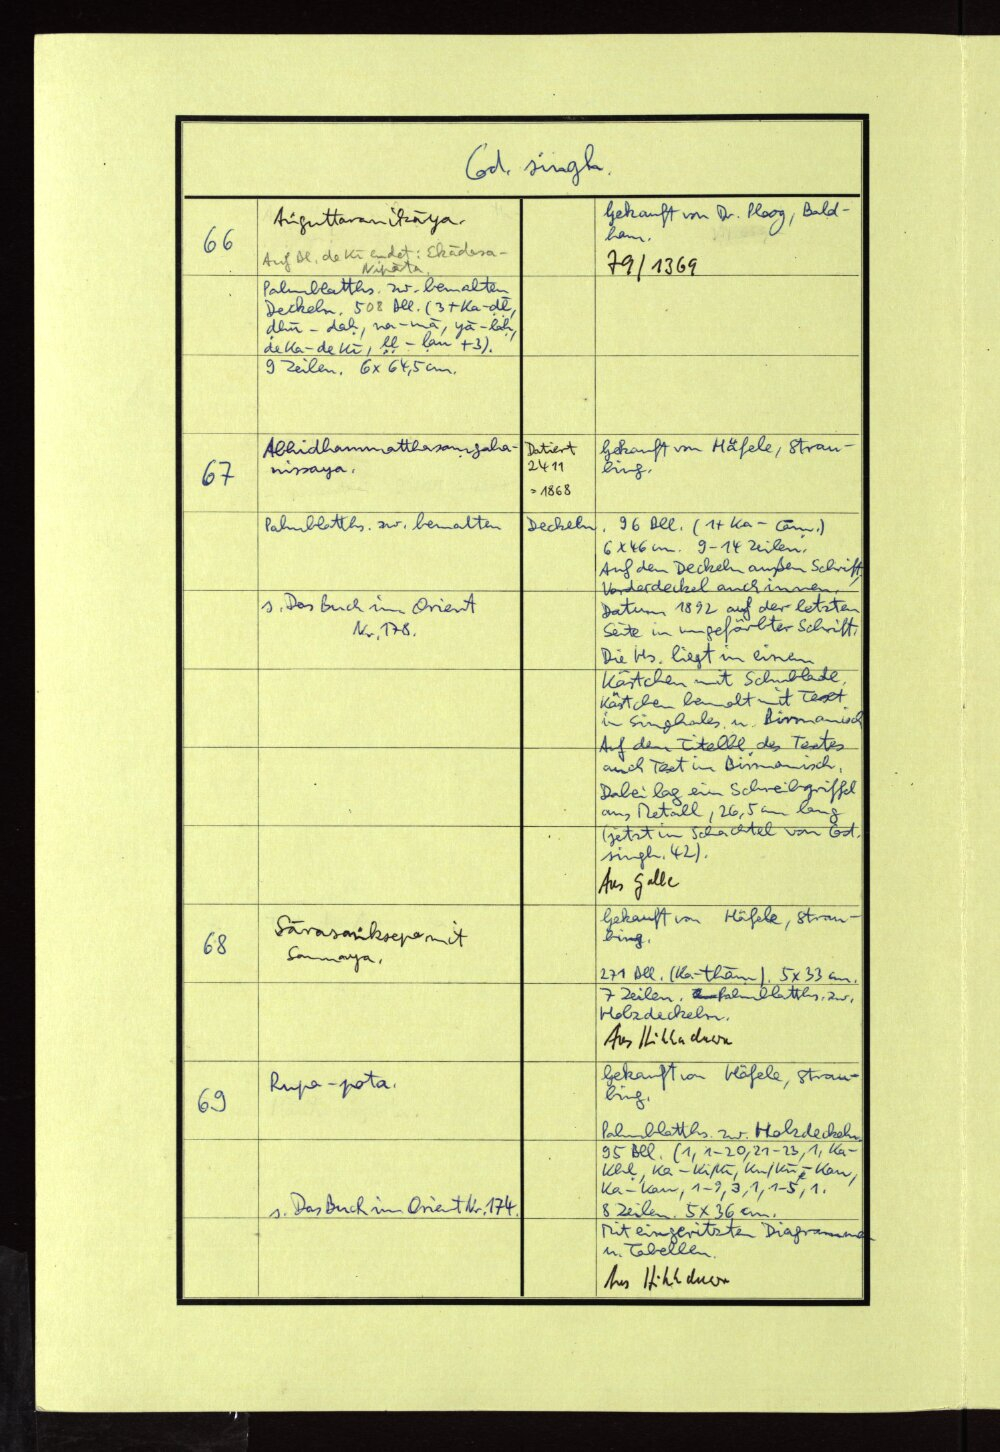 Cod. singh.
66
Aṅguttaranikāya.
Auf Bl. de Kī endet: Ekādasa-
Nipāta.
Palmblatths. zw. bemalten
Deckeln. 508 Bll. (3+Ka-
9 Zeilen. 6x64,5 cm.
Gekauft von Dr. Ploog, Bald-
ham.
79/1369
67
Abhidhammatthasaṃgaha-
nissaya.
Datiert
2411
=1868
Gekauft von Häfele, Strau-
bing.
Palmblatths. zw. bemalten Deckeln. 96 Bll. (1+Ka-
6x46 cm. 9-14 Zeilen.
Auf den Deckeln außen Schrift,
Vorderdeckel auch innen!
s. Das Buch im Orient
Nr. 178.
Datum 1892 auf der letzten
Seite in ungefärbter Schrift.
Die Hs. liegt in einem
Kästchen mit Schublade,
Kästchen bemalt mit Text
in Singhales. u. Birmanisch
Auf dem Titelbl. des Textes
auch Text in Birmanisch.
Dabei lag ein Schreibgriffel
aus Metall, 26,5 cm lang
(jetzt in Schachtel von Cod.
singh. 42).
Aus Galle
68
Sārasaṅksepe mit
Sannaya.
Gekauft von Häfele, Strau-
bing.
271 Bll. (Ka-thām). 5x33 cm.
7 Zeilen. Palmblatths. zw.
Holzdeckeln.
Aus Hikkaduwa
69
Rupa-pota.
Gekauft von Häfele, Strau-
bing.
Palmblatths. zw. Holzdeckeln
95 Bll. (1, 1-20, 21-23, 1, Ka-
Ka-Kau, 1-9, 3, 1, 1-5, 1.
s. Das Buch im Orient Nr. 174.
8 Zeilen. 5x36 cm.
Mit eingeritzten Diagrammen
u. Tabellen.
Aus Hikkaduwa